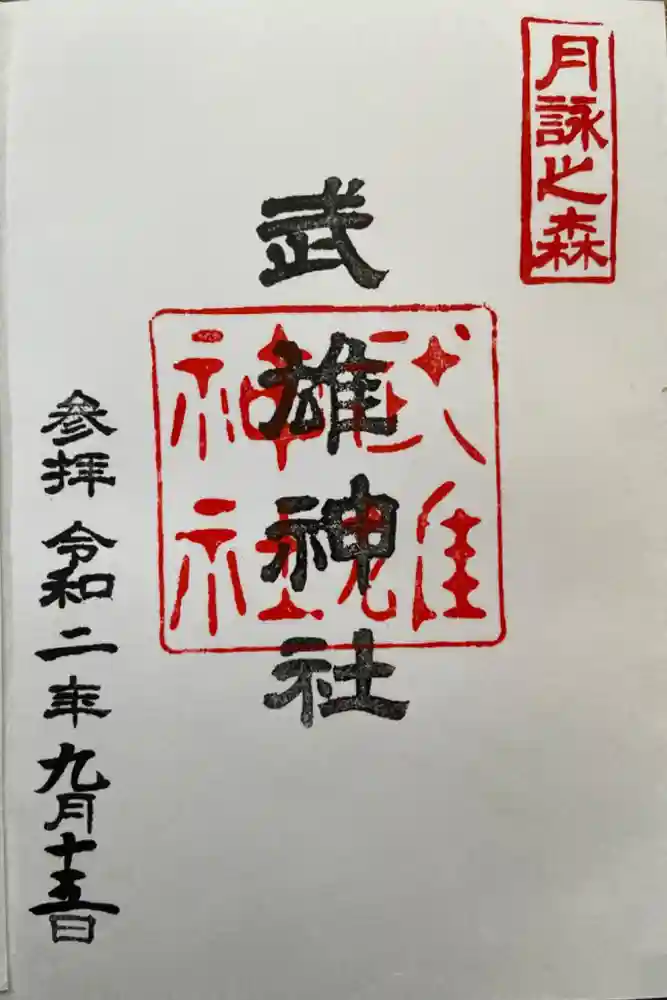 月詠之森
武雄神社
武雄
神社
参拝 令和二年 九月十五日